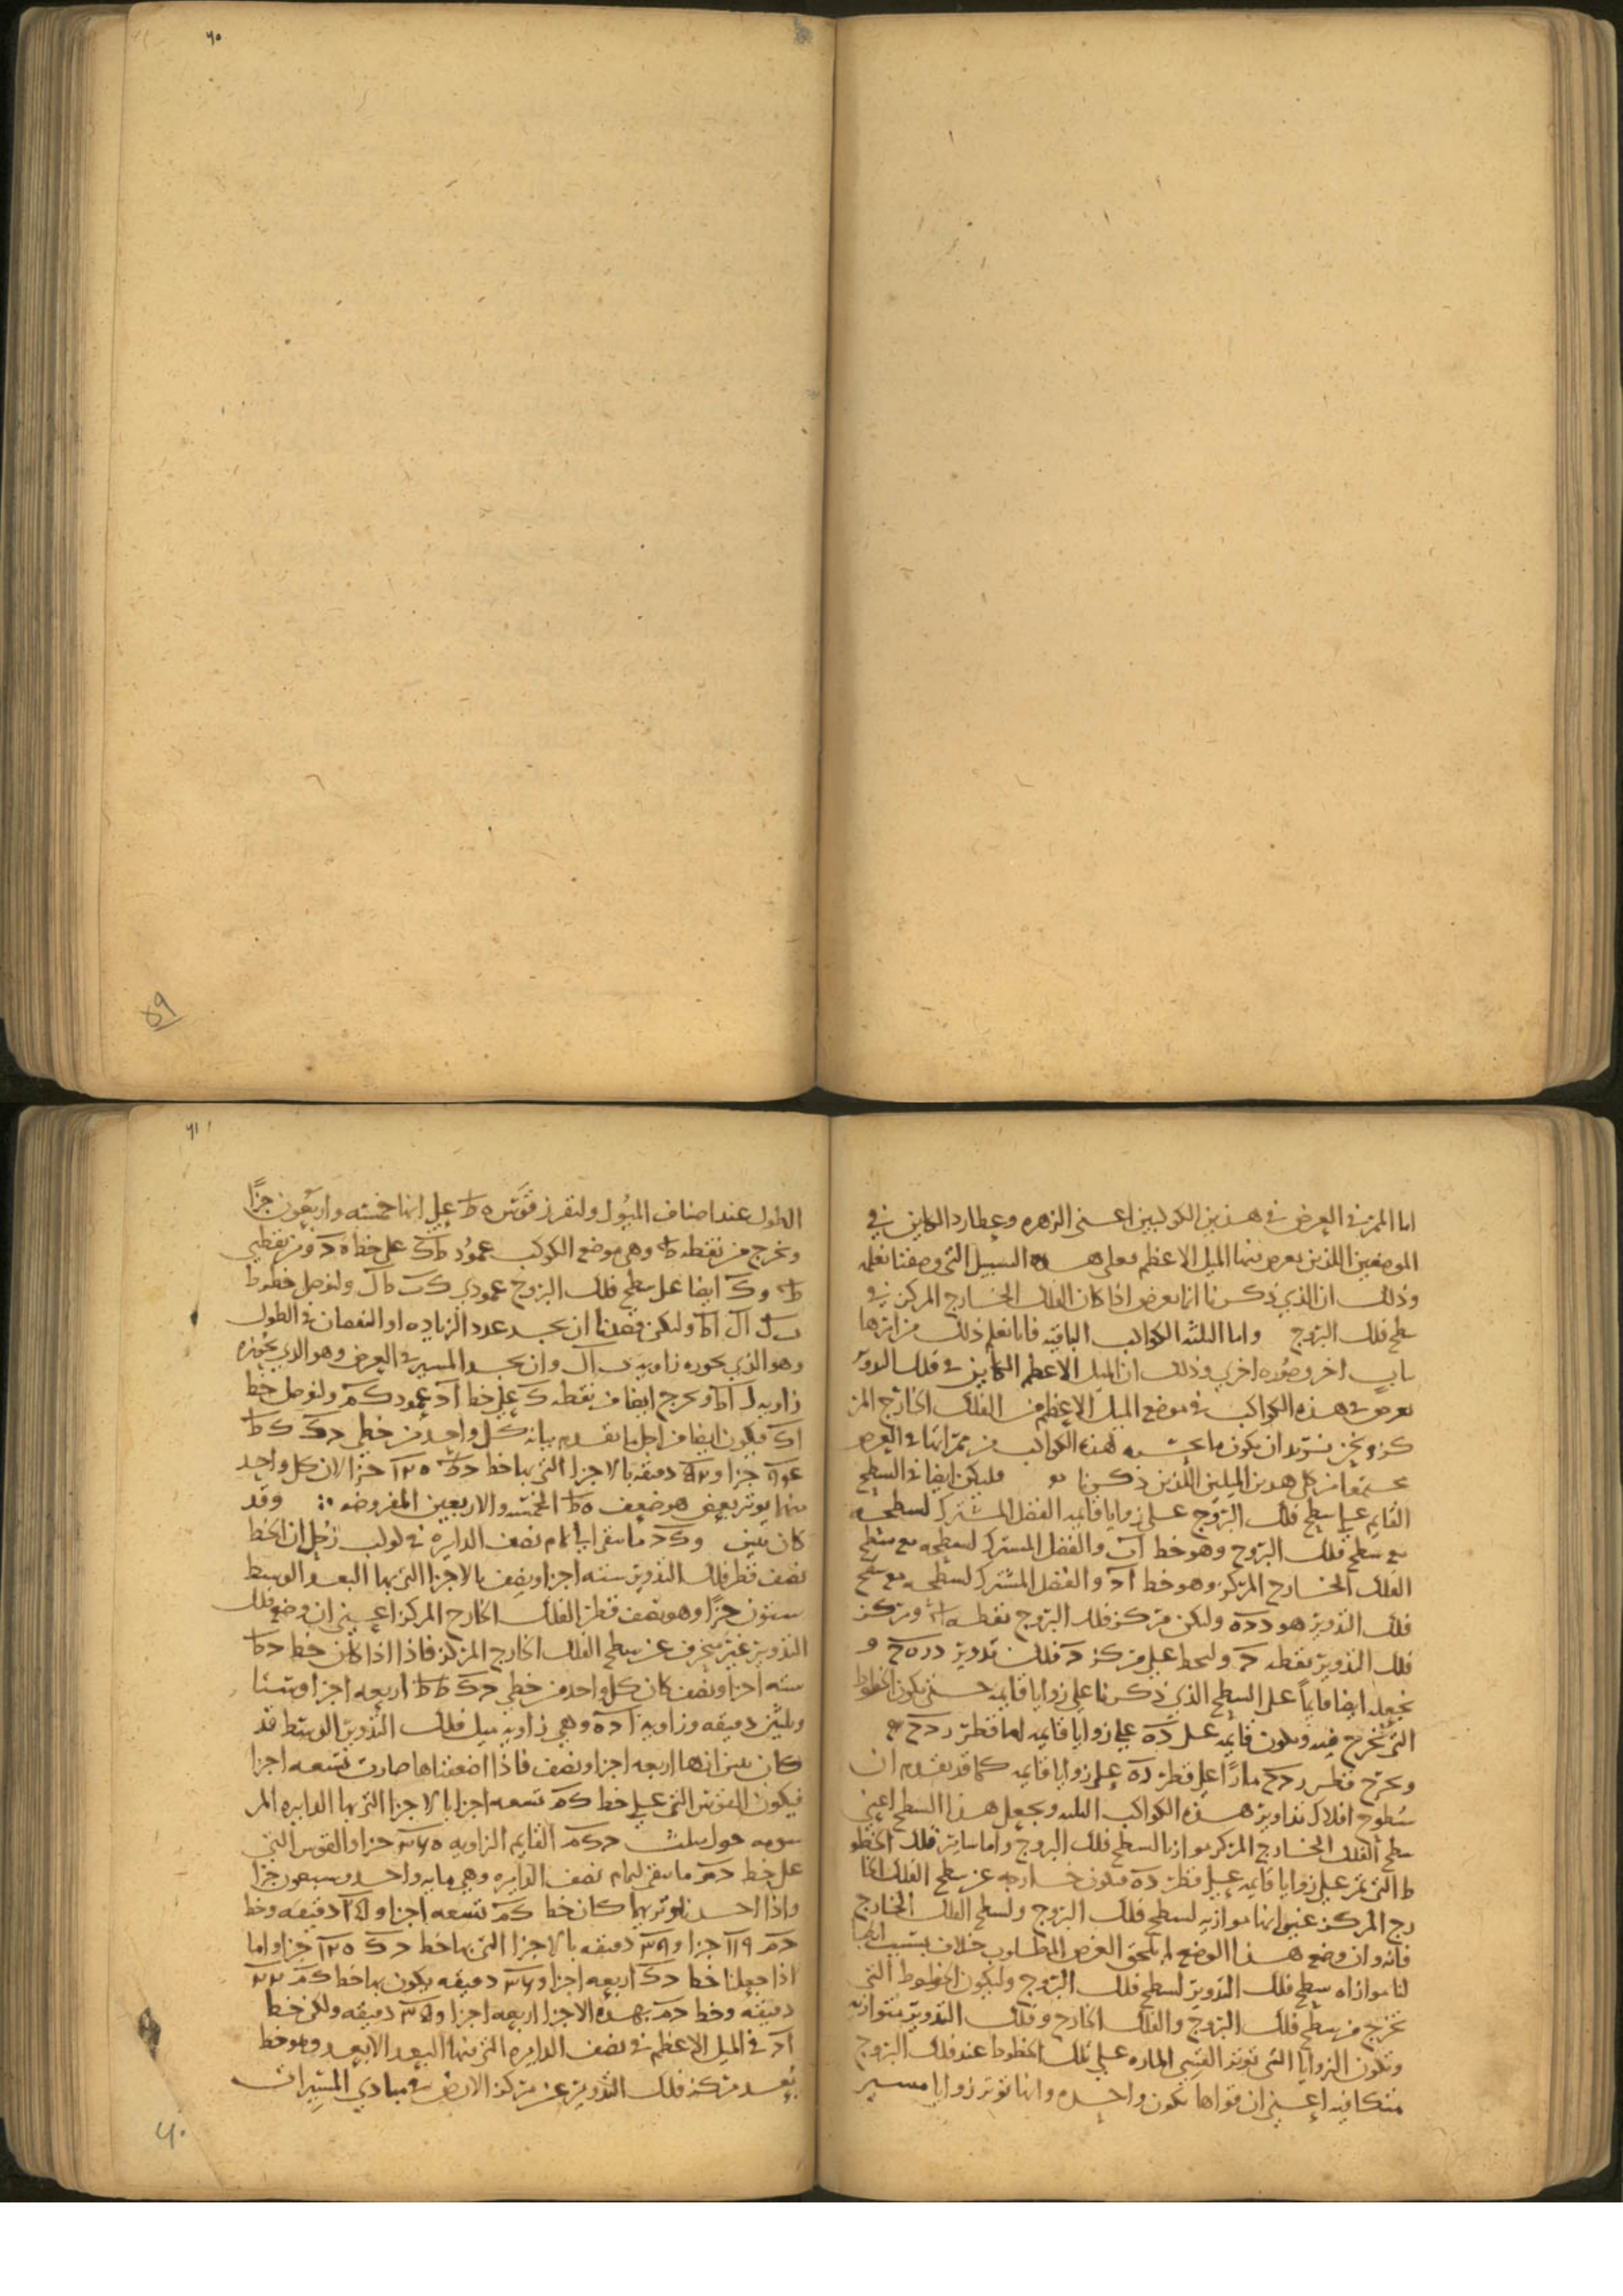 ٦٠
٥٩
٦١
اما الممر في العرض في هذين الكوكبين اعني الزهره وعطارد الكاين في
الموضعين اللذين يعرض فيهما الميل الاعظم فعلى هذه السبيل التي وصفنا نعلمه
وذلك ان الذي ذكرنا انما يعرض اذا كان الفلك الخارج المركز في
سطح فلك البروج واما الثلثه الكواكب الباقيه فانا نعلم ذلك من امرها
بباب اخر وصوره اخرى وذلك ان الميل الاعظم الكاين في فلك التدوير
يعرض في هذه الكواكب في موضع الميل الاعظم من الفلك الخارج المر
كز ونحن نريد ان يكون ما لهذه الكواكب من ممراتها في العرض
مجتمعا من كل هذين الميلين اللذين ذكرنا فليكن ايضا في السطح
القايم على سطح فلك البروج على زوايا قايمه الفصل المشترك لسطحه
مع سطح فلك البروج وهو خط اب والفصل المشترك لسطحه مع سطح
الفلك الخارج المركز وهو خط اد والفصل المشترك لسطحه مع سطح
فلك التدوير هو دده وليكن مركز فلك البروج نقطه ا ومركز
فلك التدوير نقطه د ولنخط على مركز د فلك تدوير دره ح و
نجعله ايضا قايما على السطح الذي ذكرنا على زوايا قايمه حتى يكون الخطوط
التي تخرج فيه ويكون قايمه على ده على زوايا قايمه اما قطر ردح
ونخرج قطر ردح مارا على قطر ده على زوايا قايمه كما قد تقدم ان
سطوح افلاك تداوير هذه الكواكب الثلثه ونجعل هذا السطح اعني
سطح الفلك الخارج المركز موازيا لسطح فلك البروج واما ساير تلك الخطو
ط التي تمر على زوايا قايمه على قطر ده فتكون خارجه عن سطح الفلك الخا
رج المركز غير انها موازيه لسطح فلك البروج ولسطح الفلك الخارج
فانه وان وضع هذا الوضع لم يلحق الغرض المطلوب خلاف بسبب انها
لنا موازاه سطح فلك التدوير لسطح فلك البروج وليكون الخطوط التي
تخرج من سطح فلك البروج والفلك الخارج وفلك التدوير متوازيه
وتكون الزوايا التي توتر القسي الماره على تلك الخطوط عند فلك البروج
متكافيه اعني ان قواها تكون واحده وانها توتر زوايا مسير
الطول عند اصناف الميول ولنفرز قوس ه ط على انها خمسه واربعون جزا
ونخرج من نقطه ط وهي موضع الكوكب عمود طك على خط ه د ومن نقطتي
ط وك ايضا على سطح فلك البروج عمودي كب طل ولنوصل خطوط
ب ل ال اط وليكن قصدنا ان نجد عدد الزياده او النقصان في الطول
وهو الذي تحوزه زاويه ب ال وان نجد المسير في العرض وهو الذي تحوزه
زاويه ل اط ونخرج ايضا من نقطه ك على خط اد عمود كم ولنوصل خط
اك فيكون ايضا من اجل ما تقدم بيانه كل واحد من خطي دك ك ط
جزا و دقيقه بالاجزا التي بها خط دط ١٢٥ جزا لان كل واحد
منهما يوتر بعض هو ضعف ه ط الخمسه والاربعين المفروضه وقد
كان تبين في كوكب زحل ان الخط
نصف قطر فلك التدوير سته اجزا ونصف بالاجزا التي بها البعد الوسط
ستون جزا وهو نصف قطر الفلك الخارج المركز اعني ان وضع فلك
التدوير غير منحرف عن سطح الفلك الخارج المركز فاذا اذا كان خط دط
سته اجزا ونصف كان كل واحد من خطي دك ك ط اربعه اجزا وستا
وثلثين دقيقه وزاويه اده وهي زاويه ميل فلك التدوير الوسط قد
كان تبين انها اربعه اجزا ونصف فاذا اضعفناها صارت تسعه اجزا
فيكون القوس التي على خط كم تسعه اجزا بالاجزا التي بها الدايره المر
سومه حول مثلث دكم القايم الزاويه ٣٦٥ جزا والقوس التي
على خط دم ما بقى لتمام نصف الدايره وهي مايه واحد وسبعون جزا
واذا اخذنا وتريهما كان خط كم تسعه اجزا و دقيقه وخط
دم ١١٩ جزا و٣٩ دقيقه بالاجزا التي بها خط دك ١٢٥ جزا واما
اذا جعلنا خط دك اربعه اجزا و٣٦ دقيقه يكون بها خط كم ٢٢
دقيقه وخط دم بهذه الاجزا اربعه اجزا و٣٥ دقيقه ولكن خط
اد في الميل الاعظم في نصف الدايره التي فيها البعد الابعد وهو خط
بعد مركز فلك التدوير عن مركز الارض في مبادي المسيرات
٦٠